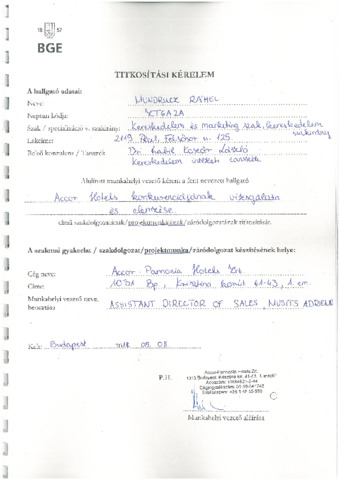 18 57
BGE
TITKOSÍTÁSI KÉRELEM
A hallgató adatai:
Neve: MUNDRUCZ RÁHEL
Neptun kódja:
Szak / specializáció v. szakirány: Kereskedelem és marketing szak, kereskedelem szakirány
Lakcíme: 2119 Pécel, Felsősor u. 125.
Belső konzulens / Tanszék: Dr. Kozár László
kereskedelem tanszék
Alulírott munkahelyi vezető kérem a fent nevezett hallgató
Accor Hotels konkurenciájának vizsgálata
és elemzése
című szakdolgozatának/projektmunkájának/záródolgozatának titkosítását.
A szakmai gyakorlat / szakdolgozat/projektmunka/záródolgozat készítésének helye:
Cég neve: Accor-Pannonia Hotels Zrt.
Címe: 1013 Bp, Krisztina körút 41-43, 1. em.
Munkahelyi vezető neve, beosztása: ASSISTANT DIRECTOR OF SALES,
Kelt: Budapest
P.H.
Accor-Pannonia Hotels Zrt.
Munkahelyi vezető aláírása